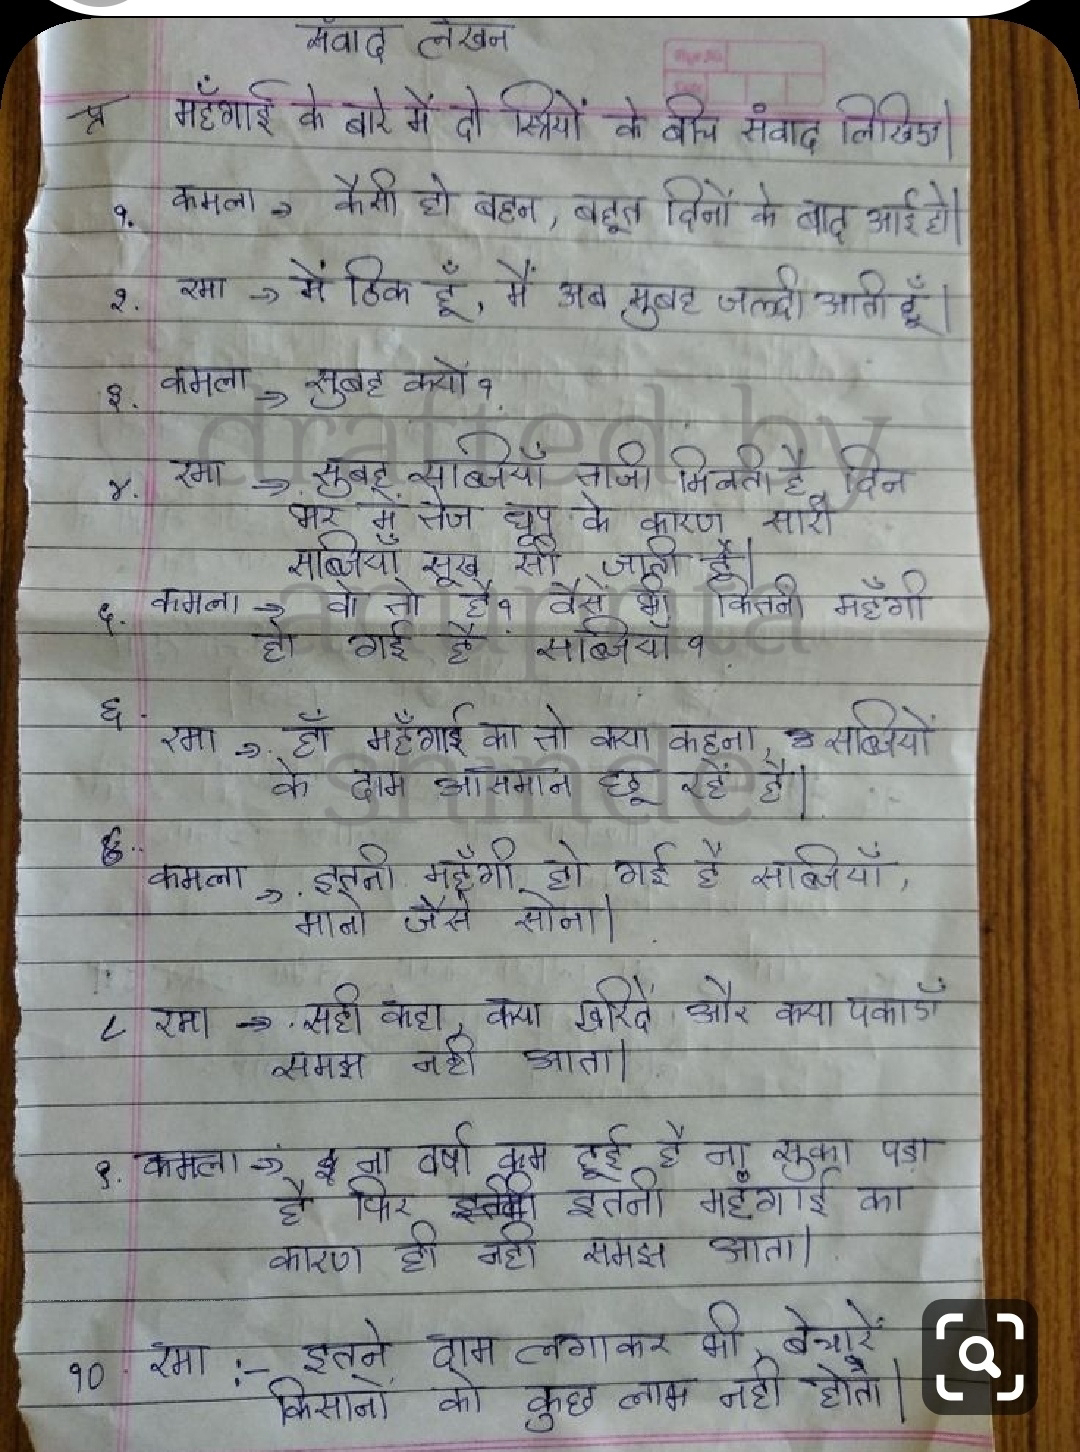 संवाद लेखन
प्र महँगाई के बारे में दो स्त्रियों के बीच संवाद लिखिए।
१. कमला → कैसी हो बहन, बहूत दिनों के बाद आई हो।
२. रमा → में ठिक हूँ, मैं अब सुबह जल्दी आती हूँ।
३. कमला → सुबह क्यों?
४. रमा → सुबह सब्जियाँ ताजी मिलती है, दिन
भर में तेज धूप के कारण सारी
सब्जियाँ सूख सी जाती है।
५. कमला → वो तो है? वैसे भी कितनी महँगी
हो गई है सब्जियाँ?
६. रमा → हाँ महँगाई का तो क्या कहना, सब्जियों
के दाम आसमान छू रहें है।
कमला → इतनी महँगी हो गई है सब्जियाँ,
मानो जैसे सोना।
८ रमा → सही कहा, क्या खरिदें और क्या पकाएँ
समझ नही आता।
९. कमला → ना वर्षा कम हूई है ना सुका पड़ा
है फिर इतनी महँगाई का
कारण ही नही समझ आता।
१० रमा :- इतने दाम लगाकर भी बेचारें
किसानों को कुछ लाभ नही होता।
drafted by
shinde